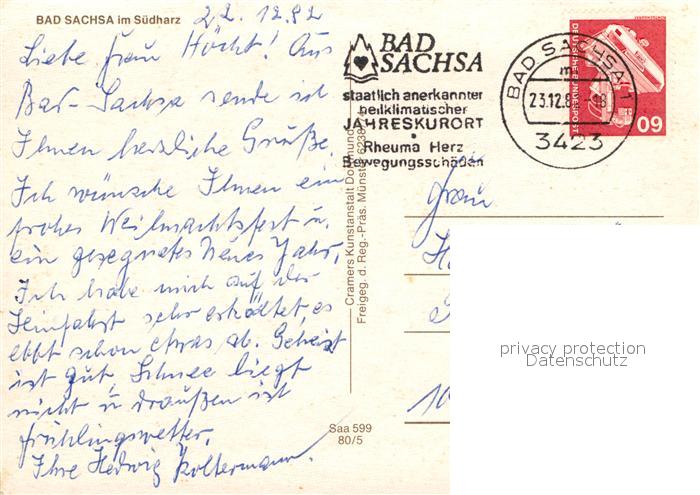 BAD SACHSA im Südharz
22.12.82
Liebe Frau Höcht! Aus
Bad-Sachsa sende ich
Ihnen herzliche Grüße.
Ich wünsche Ihnen ein
frohes Weihnachtsfest u.
ein gesegnetes Neues Jahr.
Ich habe mich auf der
Heimfahrt sehr erkältet, es
ebbt schon etwas ab. Geheizt
ist gut, Schnee liegt
nicht u. draußen ist
Frühlingswetter.
Ihre Hedwig Koltermann.
BAD
SACHSA
staatlich anerkannter
heilklimatischer
JAHRESKURORT
Rheuma Herz
Bewegungsschäden
BAD SACHSA 1
23.12.8
3423
DEUTSCHE BUNDESPOST
60
Cramers Kunstanstalt Dortmund
Freigeg. d. Reg.-Präs. Münster 6238
Saa 599
80/5
Frau
10
privacy protection
Datenschutz